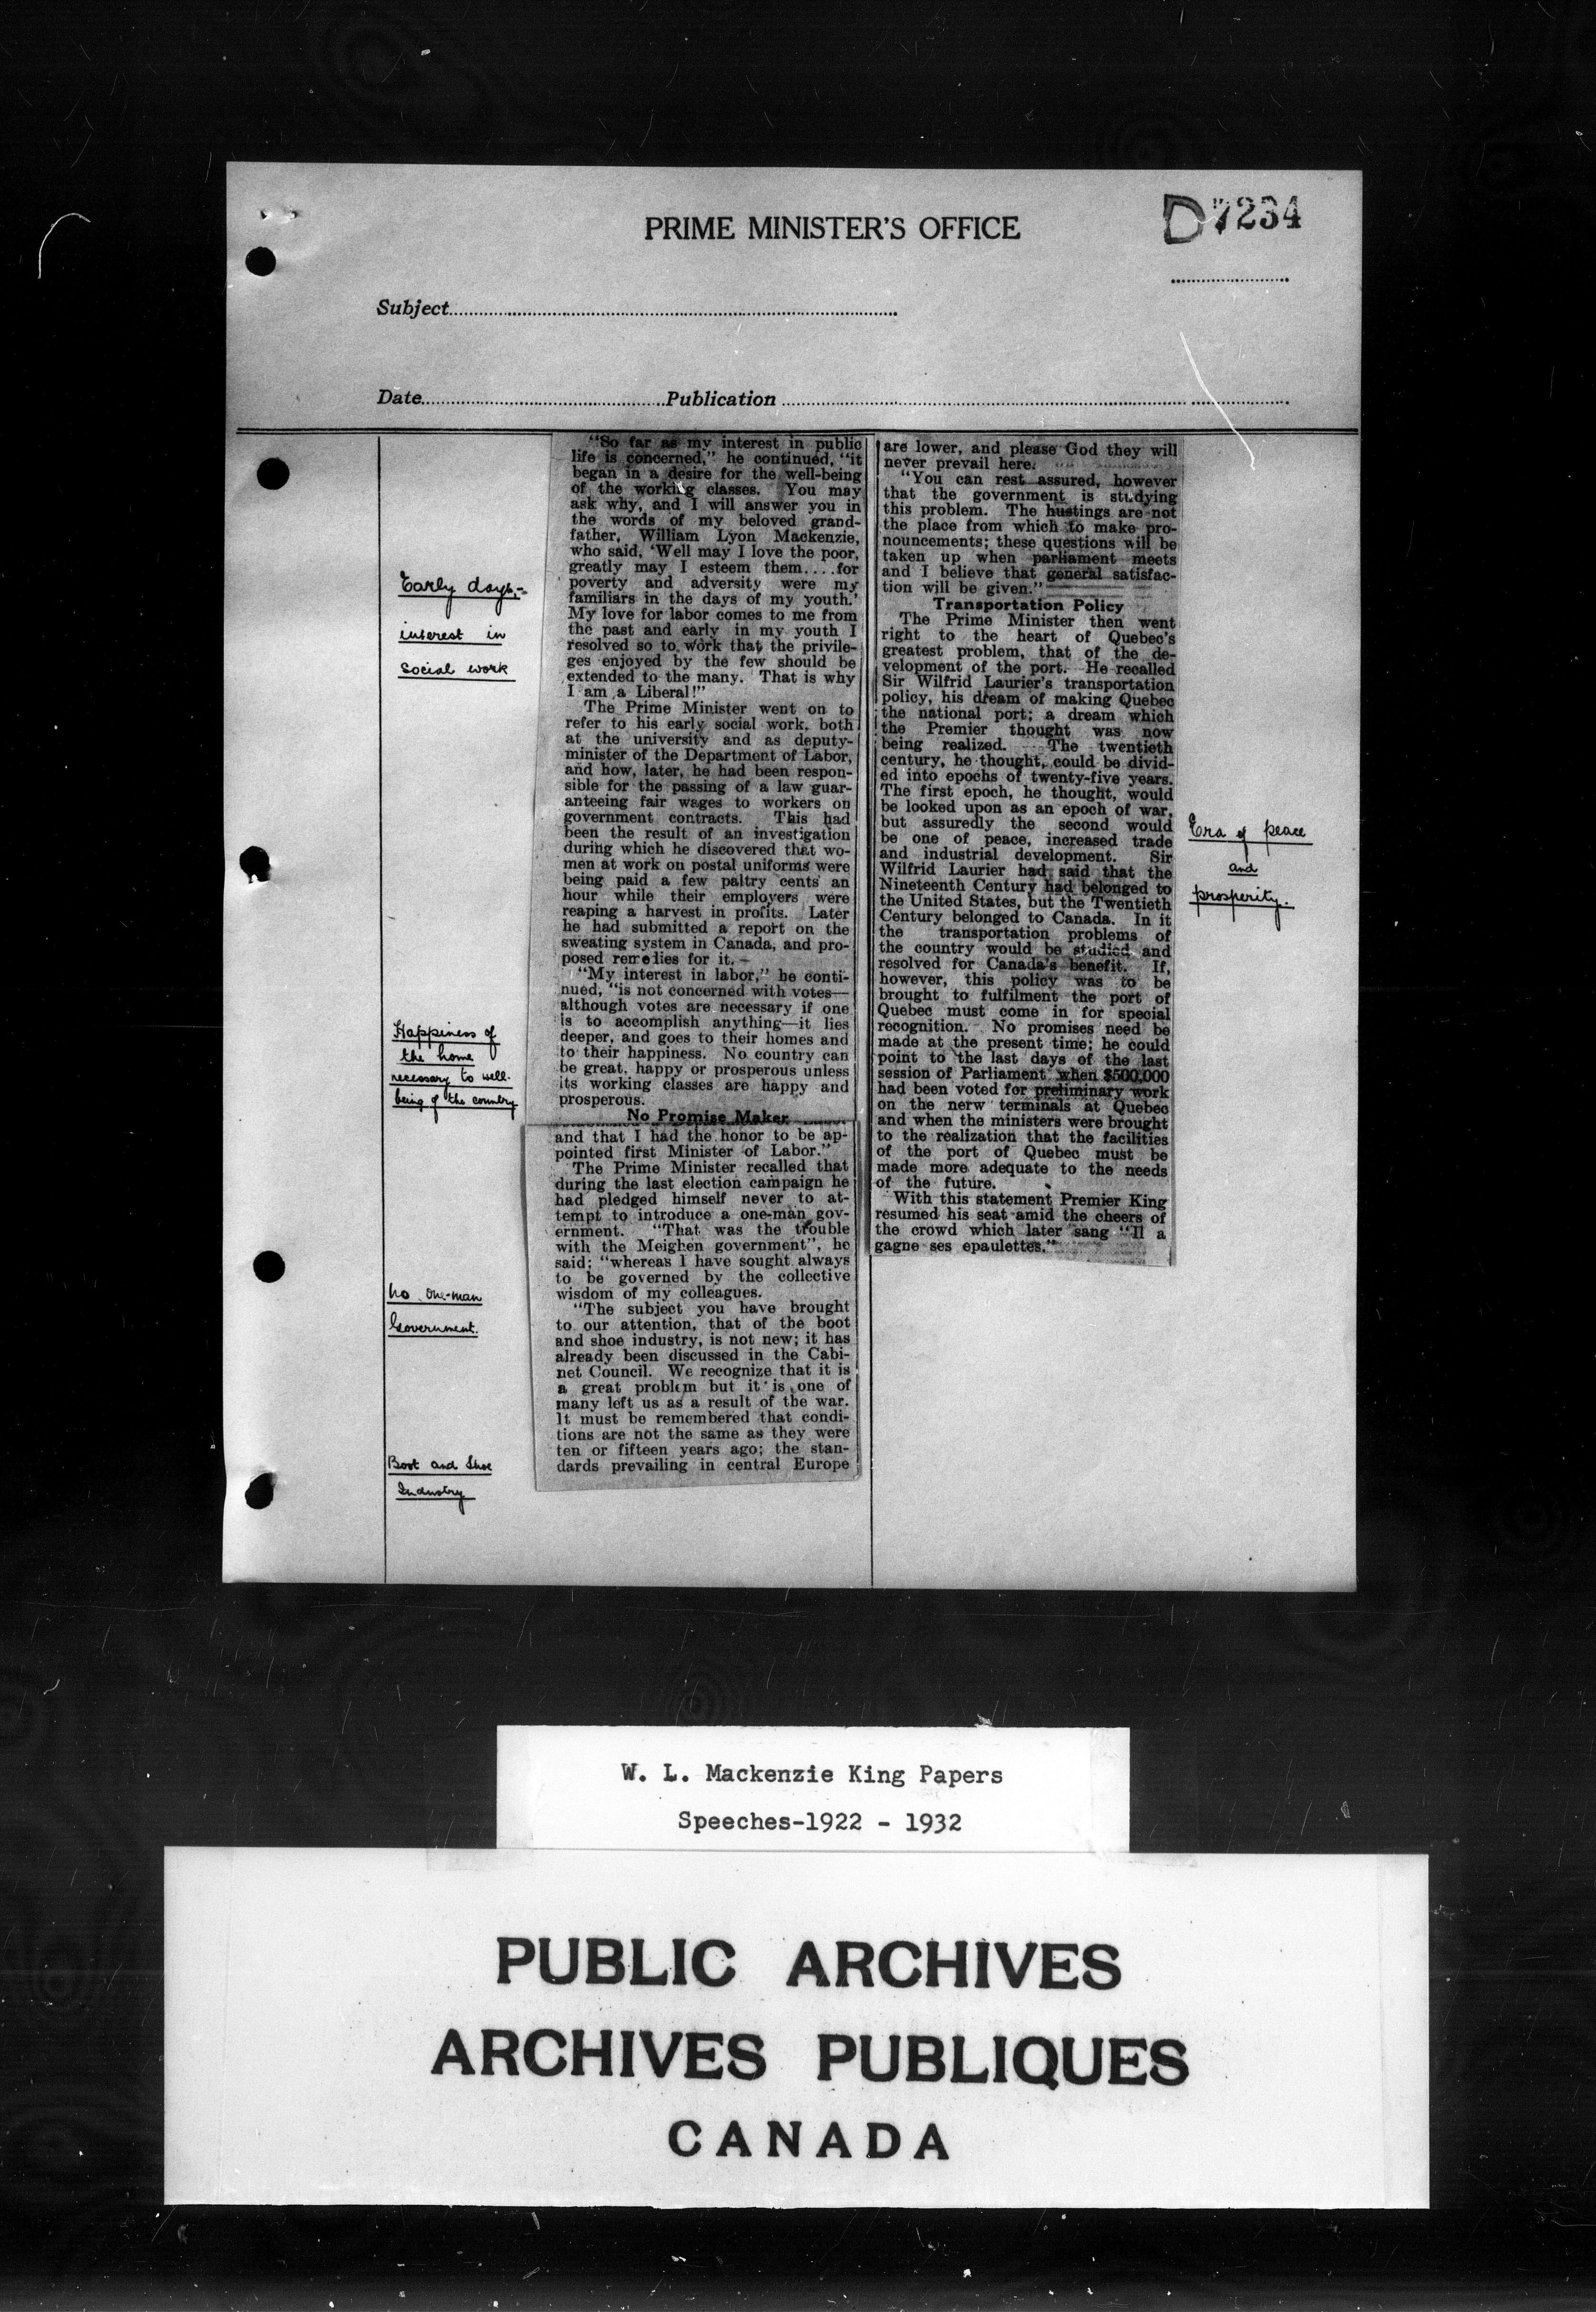 PRIME MINISTER'S OFFICE
D7234
Subject
Date Publication
"So far as my interest in public
life is concerned," he continued, "it
began in a desire for the well-being
of the working classes. You may
ask why, and I will answer you in
the words of my beloved grand-
father, William Lyon Mackenzie,
who said, 'Well may I love the poor,
greatly may I esteem them....for
poverty and adversity were my
familiars in the days of my youth.'
My love for labor comes to me from
the past and early in my youth I
resolved so to work that the privile-
ges enjoyed by the few should be
extended to the many. That is why
I am a Liberal!"
The Prime Minister went on to
refer to his early social work, both
at the university and as deputy-
minister of the Department of Labor,
and how, later, he had been respon-
sible for the passing of a law guar-
anteeing fair wages to workers on
government contracts. This had
been the result of an investigation
during which he discovered that wo-
men at work on postal uniforms were
being paid a few paltry cents an
hour while their employers were
reaping a harvest in profits. Later
he had submitted a report on the
sweating system in Canada, and pro-
posed remedies for it.
"My interest in labor," he conti-
nued, "is not concerned with votes—
although votes are necessary if one
is to accomplish anything—it lies
deeper, and goes to their homes and
to their happiness. No country can
be great, happy or prosperous unless
its working classes are happy and
prosperous.
No Promise Maker
and that I had the honor to be ap-
pointed first Minister of Labor."
The Prime Minister recalled that
during the last election campaign he
had pledged himself never to at-
tempt to introduce a one-man gov-
ernment. "That was the trouble
with the Meighen government", he
said; "whereas I have sought always
to be governed by the collective
wisdom of my colleagues.
"The subject you have brought
to our attention, that of the boot
and shoe industry, is not new; it has
already been discussed in the Cabi-
net Council. We recognize that it is
a great problem but it is one of
many left us as a result of the war.
It must be remembered that condi-
tions are not the same as they were
ten or fifteen years ago; the stan-
dards prevailing in central Europe
Early days,-
interest in
social work
Happiness of
the home
necessary to well-
being of the country
no one-man
Government.
Boot and Shoe
Industry
are lower, and please God they will
never prevail here.
"You can rest assured, however
that the government is studying
this problem. The hustings are not
the place from which to make pro-
nouncements; these questions will be
taken up when parliament meets
and I believe that general satisfac-
tion will be given."
Transportation Policy
The Prime Minister then went
right to the heart of Quebec's
greatest problem, that of the de-
velopment of the port. He recalled
Sir Wilfrid Laurier's transportation
policy, his dream of making Quebec
the national port; a dream which
the Premier thought was now
being realized. The twentieth
century, he thought, could be divid-
ed into epochs of twenty-five years.
The first epoch, he thought, would
be looked upon as an epoch of war,
but assuredly the second would
be one of peace, increased trade
and industrial development. Sir
Wilfrid Laurier had said that the
Nineteenth Century had belonged to
the United States, but the Twentieth
Century belonged to Canada. In it
the transportation problems of
the country would be studied and
resolved for Canada's benefit. If,
however, this policy was to be
brought to fulfilment the port of
Quebec must come in for special
recognition. No promises need be
made at the present time; he could
point to the last days of the last
session of Parliament when $500,000
had been voted for preliminary work
on the nerw terminals at Quebec
and when the ministers were brought
to the realization that the facilities
of the port of Quebec must be
made more adequate to the needs
of the future.
With this statement Premier King
resumed his seat amid the cheers of
the crowd which later sang "Il a
gagne ses epaulettes."
Era of peace
and
prosperity.
W. L. Mackenzie King Papers
Speeches-1922 - 1932
PUBLIC ARCHIVES
ARCHIVES PUBLIQUES
CANADA